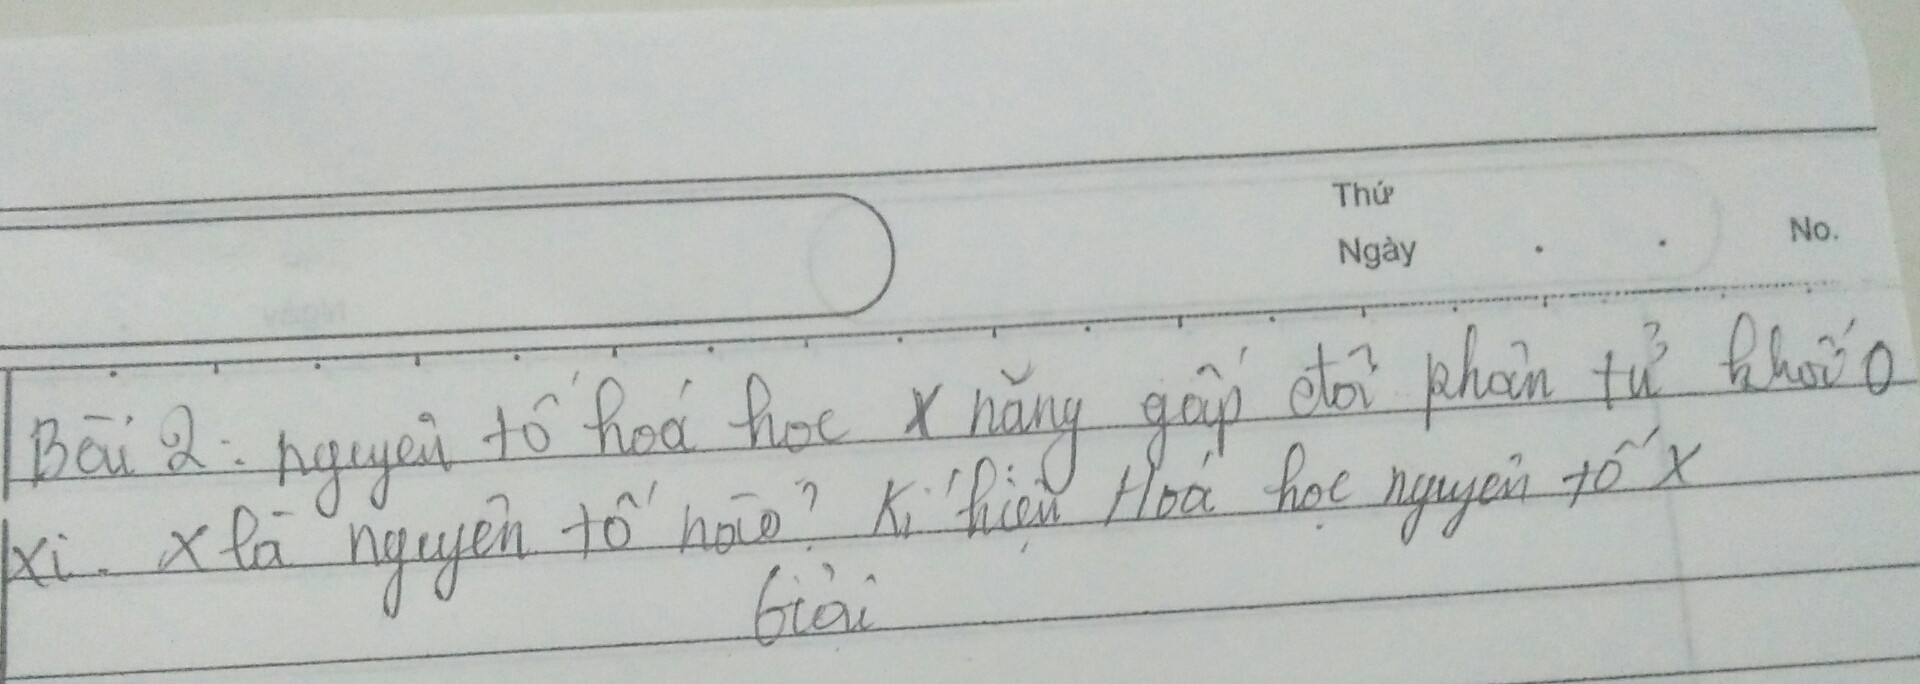 Thứ
Ngày
No.
Bài 2: nguyên tố hoá học X nặng gấp đôi phân tử khối O
xi. X là nguyên tố nào? Kí hiệu Hoá học nguyên tố X
Giải